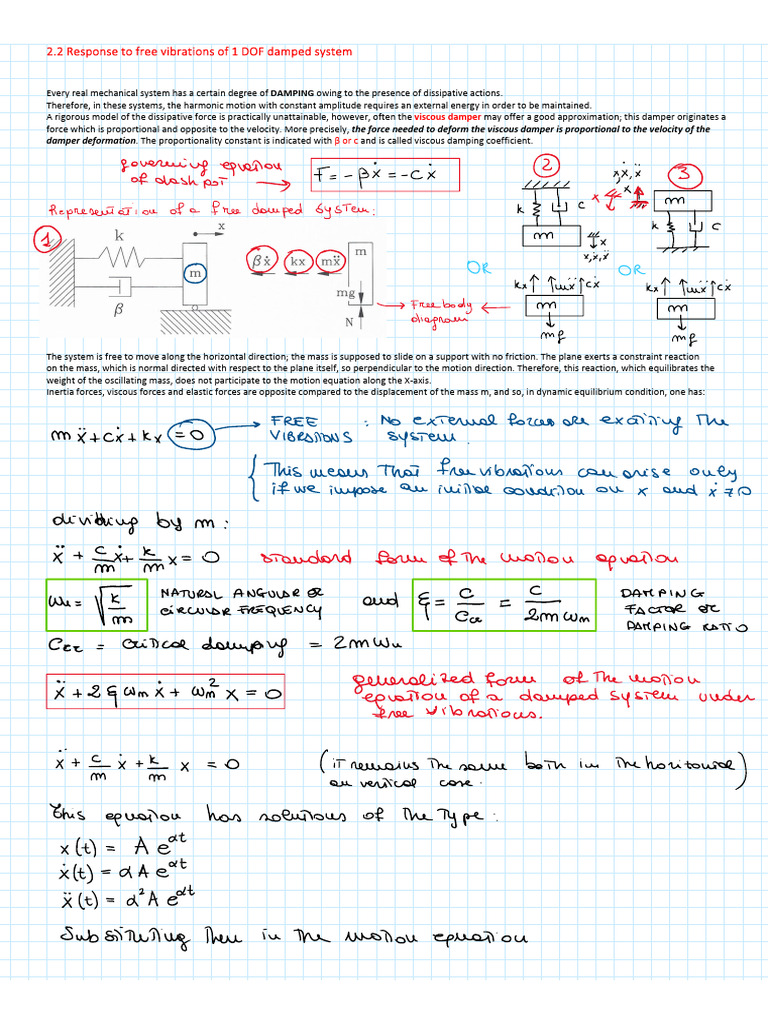 2.2 Response to free vibrations of 1 DOF damped system
Every real mechanical system has a certain degree of DAMPING owing to the presence of dissipative actions.
Therefore, in these systems, the harmonic motion with constant amplitude requires an external energy in order to be maintained.
A rigorous model of the dissipative force is practically unattainable, however, often the viscous damper may offer a good approximation; this damper originates a
force which is proportional and opposite to the velocity. More precisely, the force needed to deform the viscous damper is proportional to the velocity of the
damper deformation. The proportionality constant is indicated with β or c and is called viscous damping coefficient.
governing equation
of dash pot
F = -βẋ = -cẋ
Representation of a free damped system:
1
k
x
m
β
βẋ
kx
mẍ
m
mg
N
Free body
diagram
2
k
c
m
x
x, ẋ, ẍ
OR
kx
mẍ
cẋ
m
mg
x, ẋ, ẍ
x
x
3
m
k
c
OR
kx
mẍ
cẋ
m
mg
The system is free to move along the horizontal direction; the mass is supposed to slide on a support with no friction. The plane exerts a constraint reaction
on the mass, which is normal directed with respect to the plane itself, so perpendicular to the motion direction. Therefore, this reaction, which equilibrates the
weight of the oscillating mass, does not participate to the motion equation along the X-axis.
Inertia forces, viscous forces and elastic forces are opposite compared to the displacement of the mass m, and so, in dynamic equilibrium condition, one has:
mẍ + cẋ + kx = 0
FREE VIBRATIONS : No external forces are exciting the system.
This means that free vibrations can arise only
if we impose an initial condition on x and ẋ ≠ 0
dividing by m:
ẍ + c/m ẋ + k/m x = 0 standard form of the motion equation
ωn = √(k/m) NATURAL ANGULAR OR CIRCULAR FREQUENCY and ξ = c/ccr = c/(2mωn) DAMPING FACTOR OR DAMPING RATIO
Ccr = critical damping = 2mωn
ẍ + 2ξωnẋ + ωn² x = 0
generalized form of the motion
equation of a damped system under
free vibrations.
ẍ + c/m ẋ + k/m x = 0 (it remains the same both in the horizontal
on vertical case.)
This equation has solutions of the type:
x(t) = A e^αt
ẋ(t) = αA e^αt
ẍ(t) = α²A e^αt
Substituting then in the motion equation